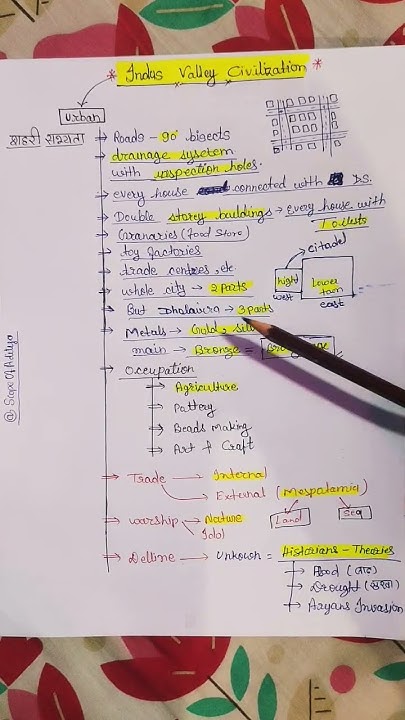 * Indus Valley Civilization *
Urban
शहरी सभ्यता
→ Roads - 90° bisects
→ drainage sysetem
with unspection holes.
→ every house connected with D.S.
→ Double storey buildings → every house with
Toilests
→ Granaries (Food Store)
→ toy factories
→ trade centres, etc.
citadel
→ whole city → 2 parts
high
Lower
town
west
east
→ But Dholavira → 3 parts
→ Metals → Gold,
main → Bronze =
→ Occupation
→ Agriculture
→ Pottery
→ Beads Making
→ Art & Craft
→ Trade → Internal
→ External (Mespatamia)
Land
Sea
→ Warship → Nature
Idol
→ Decline → Unkown = Historians - Theories
→ Flood (बाढ़)
→ Drought (सूखा)
→ Aayans Invasion
@ScopeOfAditya